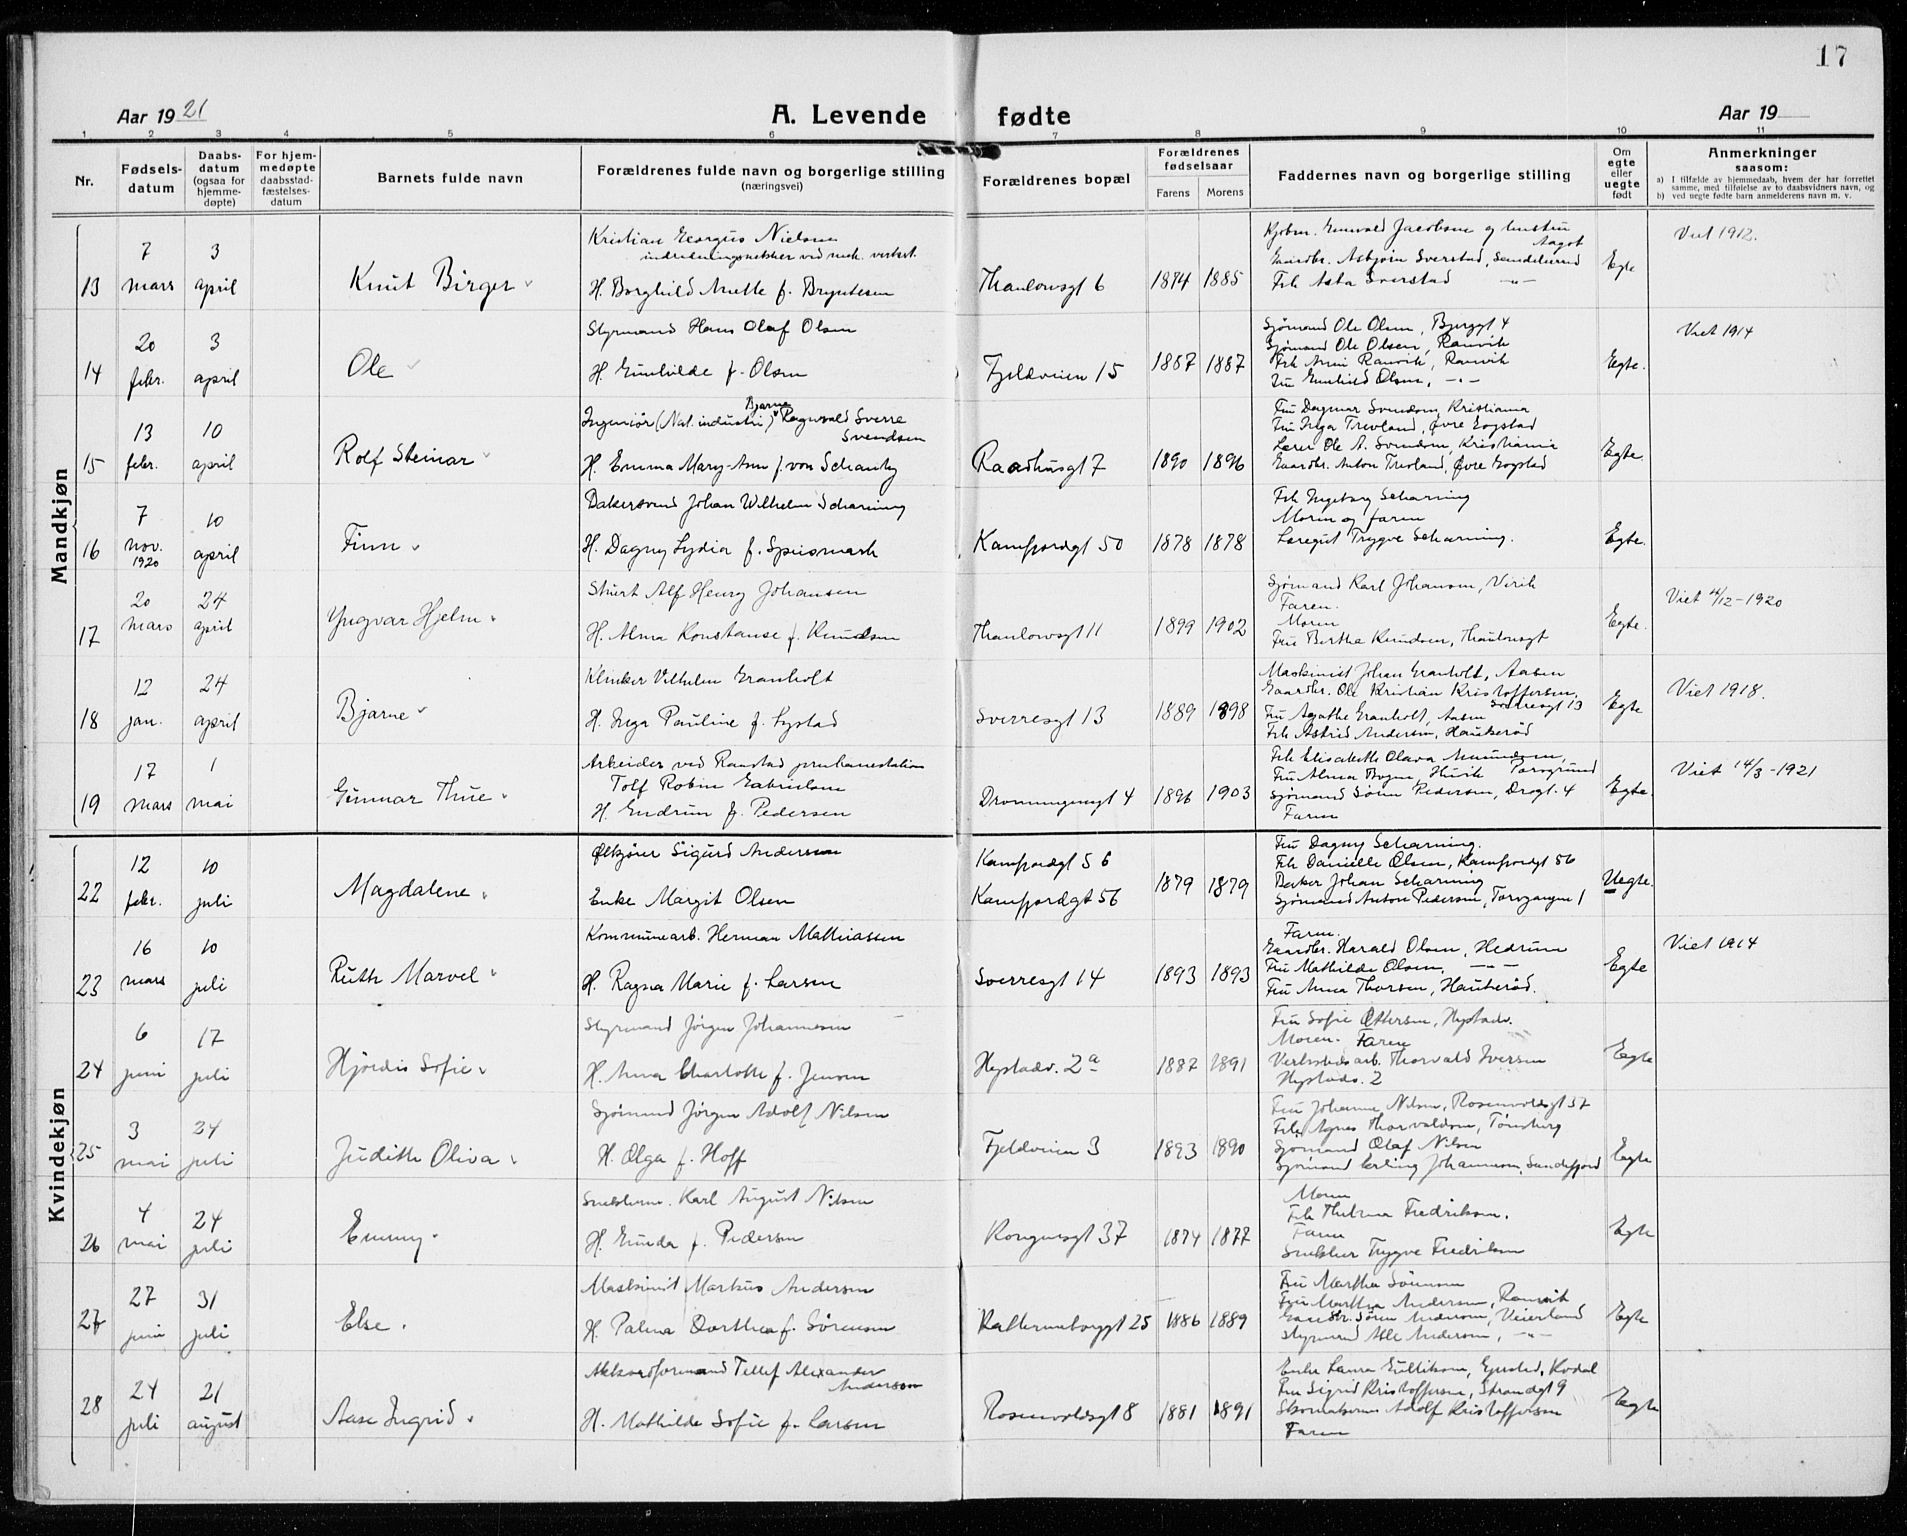 17
Aar 1921
A. Levende fødte
Aar 19
1 2 3 4 5 6 7 8 9 10 11
Nr.
Fødsels-datum
Daabs-datum (ogsaa for hjemme-døpte)
For hjem-medøpte daabsstad-fæstelses-datum
Barnets fulde navn
Forældrenes fulde navn og borgerlige stilling (næringsvei)
Forældrenes bopæl
Forældrenes fødselsaar
Farens Morens
Faddernes navn og borgerlige stilling
Om egte eller uegte født
Anmerkninger saasom:
a) I tilfælde av hjemmedaab, hvem der har forrettet samme, med tilføielse av to daabsvidners navn, og
b) ved uegte fødte barn anmelderens navn m. v.
Mandkjøn
13 7 mars 3 april Knut Birger
Kristian Georgius Nielsen
H. Borghild Anette f. Bryntesen
Thaulowsgt 6 1874 1885
Asbjørn Sverstad
Frk Asta Sverstad —"—
Egte
Viet 1912.
14 20 febr. 3 april Ole
Styrmand Hans Olaf Olsen
H. Gunhilde f. Olsen
Fjeldveien 15 1887 1887
Sjømand Ole Olsen, Bjerggt 4
Sjømand Ole Olsen, Ranvik
Frk Anni Ranvik, Ranvik
Fru Gunhild Olsen, —"—
Egte.
Viet 1914
15 13 febr. 10 april Rolf Steinar
Ingeniør (Nat. industri) Bjarne Ragnvald Sverre
Svendsen
H. Emma Mary-Ann f. von Schantz
Raadhusgt 7 1890 1896
Fru Dagmar Svendsen, Kristiania
Fru Inga Trevland, Øvre Gogstad
Lærer Ole A. Svendsen, Kristiania
Gaardbr. Anton Trevland, Øvre Gogstad
Egte.
16 7 nov. 1920 10 april Finn
Bakersvend Johan Wilhelm Scharning
H. Dagny Lydia f. Speismark
Kamfjordgt 50 1878 1878
Frk Ingeborg Scharning
Moren og faren
Læregut Trygve Scharning.
Egte.
17 20 mars 24 april Yngvar Hjelm
Stuert Alf Henry Johansen
H. Alma Konstanse f. Knudsen
Thaulowsgt 11 1899 1902
Sjømand Karl Johansen, Virik
Faren.
Moren
Fru Berthe Knudsen, Thaulowsgt
Egte.
Viet 4/12-1920
18 12 jan. 24 april Bjarne
Klinker Vilhelm Granholt
H. Inga Pauline f. Lystad
Sverresgt 13 1889 1898
Maskinist Johan Granholt, Aasen
Gaardbr. Ole Kristian Kristoffersen,
Sverresgt 13
Fru Agathe Granholt, Aasen
Frk Astrid Andersen, Haukerød
Egte
Viet 1918.
19 17 mars 1 mai Gunnar Thue
Arbeider ved Ranstad
Tolf Robin Gabrielsen
H. Gudrun f. Pedersen
Dronningensgt 4 1896 1903
Frk Elisabeth Olava Amundsen,
Porsgrund
Sjømand Sønn Pedersen, Drogt. 4
Faren
Egte.
Viet 14/3-1921
Kvindekjøn
22 12 febr. 10 juli Magdalene
Ølkjører Sigurd Andersen
Enke Margit Olsen
Kamfjordgt 56
Kamfjordgt 56
1879 1879
Fru Dagny Scharning.
Frk Danielle Olsen, Kamfjordgt 56
Baker Johan Scharning
Sjømand Anton Pedersen, Torvgangen 1
Uegte.
23 16 mars 10 juli Ruth Marvel
Kommunearb. Herman Mathiassen
H. Ragna Marie f. Larsen
Sverresgt 14 1893 1893
Faren.
Gaardbr. Harald Olsen, Hedrum
Fru Mathilde Olsen, —"—
Fru Anna Thorsen, Haukerød.
Egte
Viet 1914
24 6 juni 17 juli Hjørdis Sofie
Styrmand Jørgen Johannesen
H. Anna Charlotte f. Jensen
Hystadv. 2a 1887 1891
Fru Sofie Ottersen, Hystadv.
Moren. Faren
Verkstedsarb. Thorvald Iversen
Hystadv. 2
Egte
25 3 mai 24 juli Judith Oliva
Sjømand Jørgen Adolf Nilsen
H. Olga f. Hoff
Fjeldveien 3 1893 1890
Fru Johanne Nilsen, Rosenvoldsgt 37
Frk. Agnes Thorvaldsen, Tønsberg
Sjømand Olaf Nilsen
Sjømand Erling Johannesen, Sandefjord
Egte
26 4 mai 24 juli Emmy
Karl August Nilsen
H. Gunda f. Pedersen
Kongensgt 37 1874 1877
Moren
Frk Thelma Fredriksen.
Faren
Snekker Trygve Fredriksen
Egte
27 27 juni 31 juli Else
Maskinist Markus Andersen
H. Palma Dorthea f. Sørensen
Ratterneborggt 25 1886 1889
Fru Martha Sørensen
Fru Martha Andersen, Ranvik
Gaardbr. Søren Andersen, Veierland
Styrmand Alle Andersen, —"—
Egte
28 24 juli 21 august Aase Ingrid
Akkordformand Tellef Alexander
Andersen
H. Mathilde Sofie f. Larsen
Rosenvoldsgt 8 1881 1891
Enke Laura Gulliksen, Gjersted, Kodal
Fru Sigrid Kristoffersen, Strandgt 9
Adolf Kristoffersen
Faren
Egte